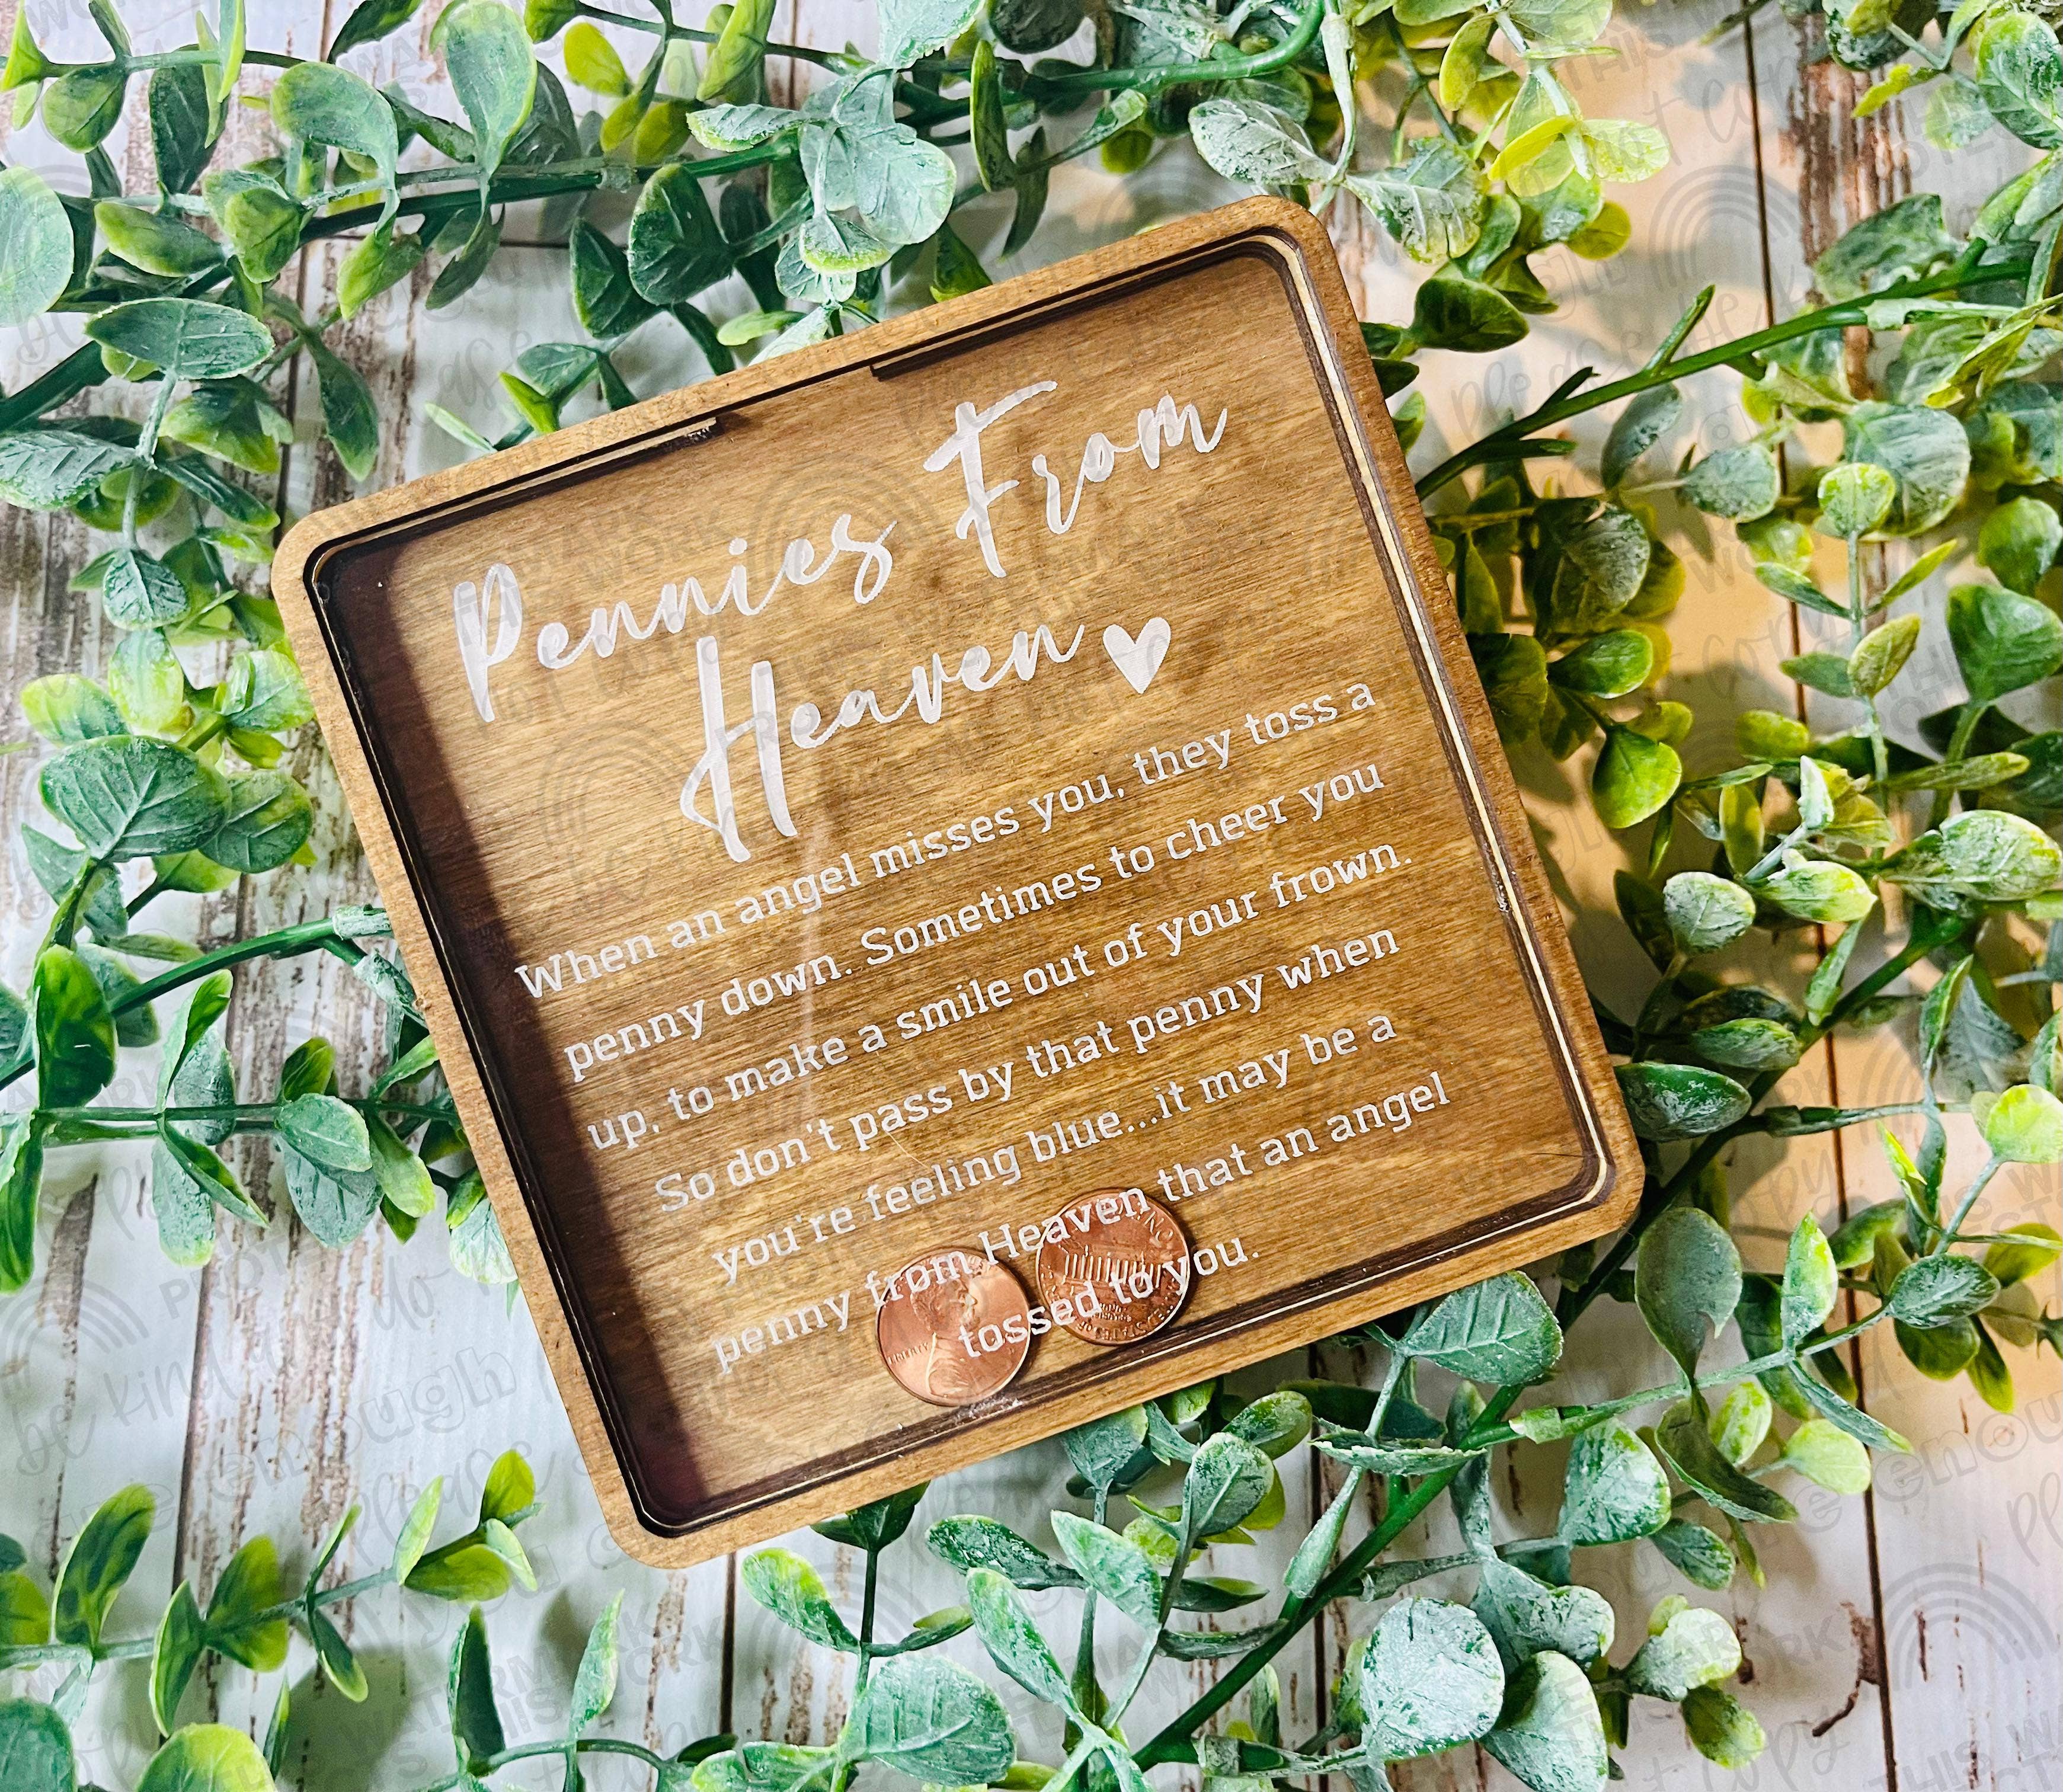 Pennies From
Heaven
When an angel misses you, they toss a
penny down. Sometimes to cheer you
up, to make a smile out of your frown.
So don't pass by that penny when
you're feeling blue...it may be a
penny from Heaven that an angel
tossed to you.
LIBERTY